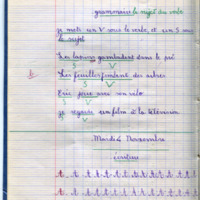 grammaire le sujet du verbe
je mets un V sous le verbe et un S sous
le sujet
Les lapins gambadent dans le pré
S V
Les feuilles tombent des arbres
S V
Eric joue avec son vélo
S V
je regarde un film à la télévision
S V
Mardi 4 Novembre
écriture
t t t t t t t t t t t
t t t t t t t t t t t